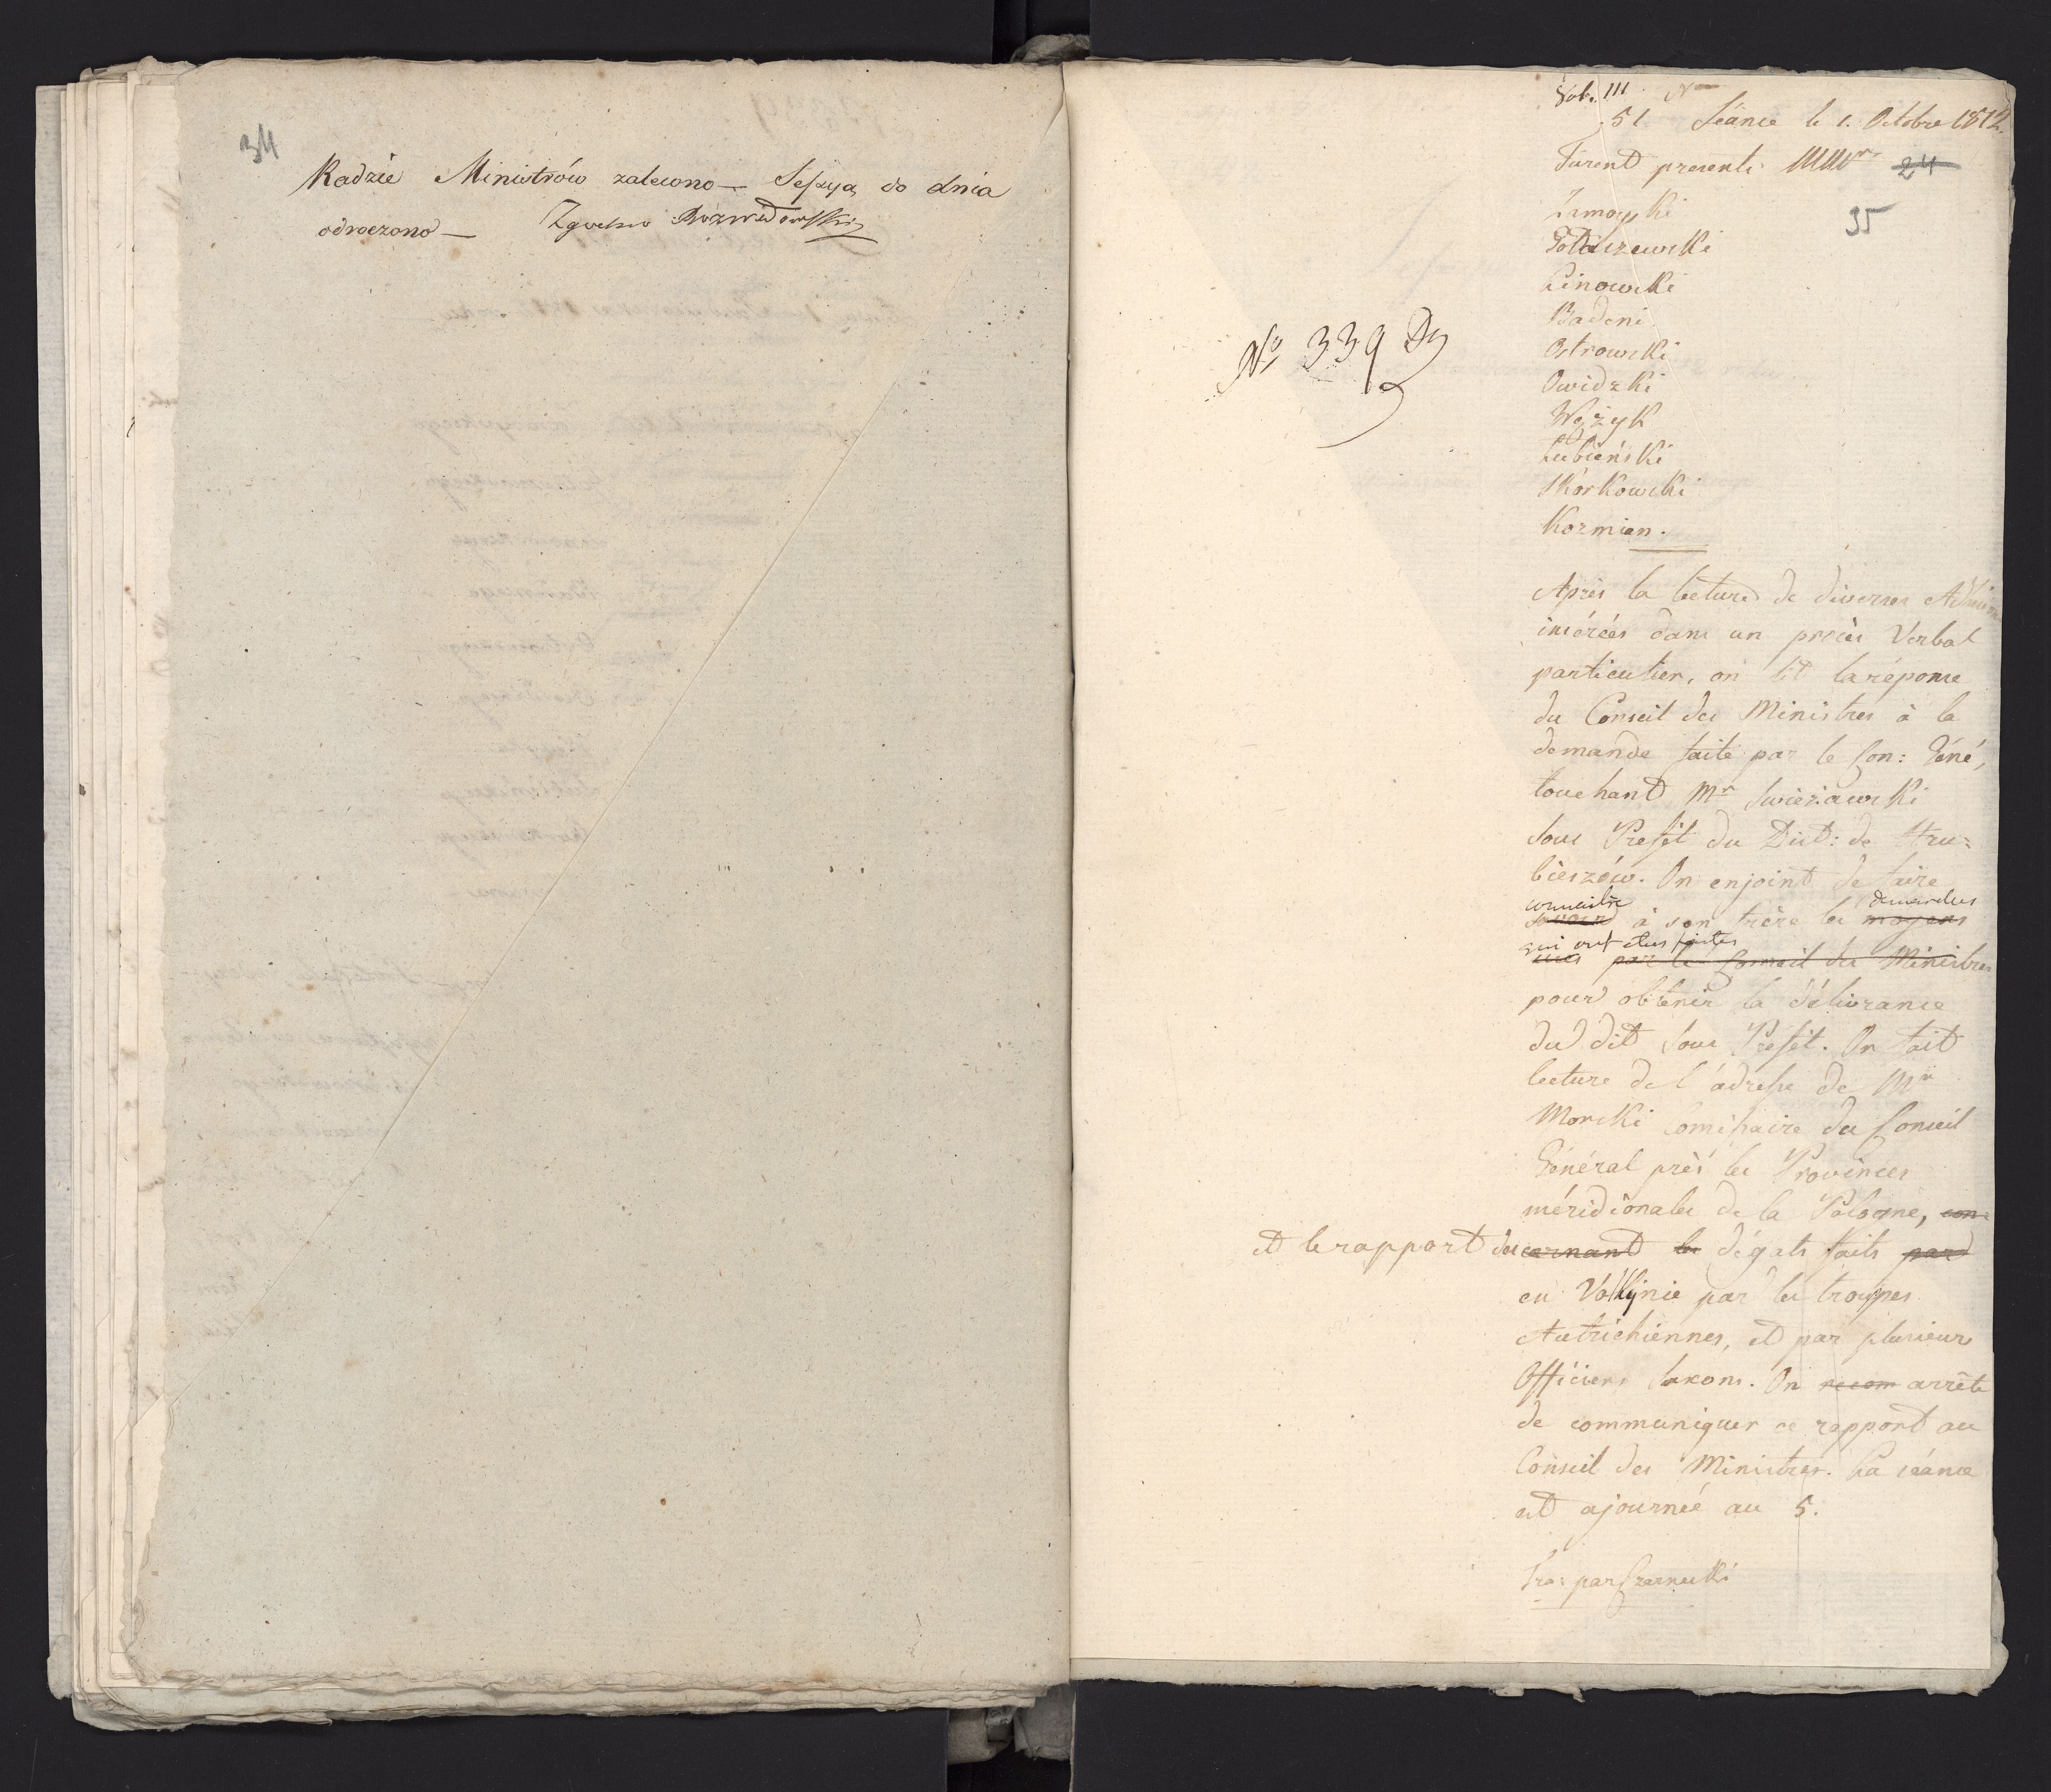 34
Radzie Ministrów zalecono — Sessya do dnia
odroczono — Zgodno Rozwadowski
Vol. III. N
51 Séance le 1. Octobre 1812.
Furent presents MMrs 24
Zamoyski
35
Gołaszewski
Linowski
Badeni
Ostrowski
Owidzki
Wężyk
Łubieński
Skórkowski
Kozmian.
No 339 Dz
Après la lecture de diverses
insérées dans un procès Verbal
particulier, on lit la réponse
du Conseil des Ministres à la
demande faite par le Con: Géné,
touchant Mr Swieżawski
Sous Prefét du Dist: de Hru=
bieszów. On enjoint de faire
connaitre demandes
savoir à son frère les moyens
qui ont etus faites
usés par le Conseil des Ministres
pour obtenir la délivrance
du dit Sous Prefét. On fait
lecture de l'adresse de Mr
Morski Comissaire du Conseil
Général près les Provinces
méridionales de la Pologne, con
et le rapport des cernant les dégats faits par
en Volhynie par les troupes
Autrichiennes, et par plusieurs
Officiers Saxons. On recom arrête
de communiquer ce rapport au
Conseil des Ministres. La séance
est ajournée au 5.
Tra: par Czarnecki